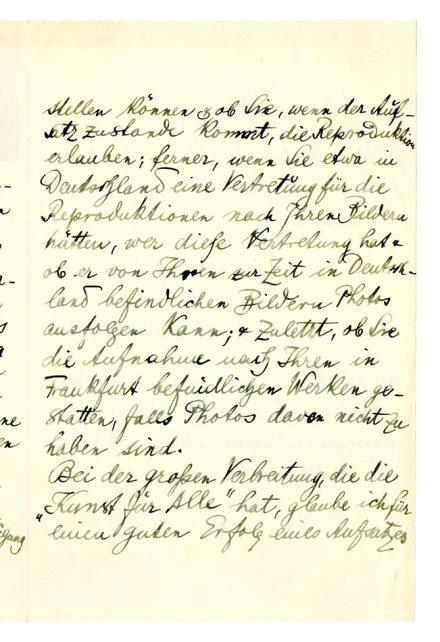 stellen können & ob Sie, wenn der Auf-
satz zustande kommt, die Reproduktion
erlauben; ferner, wenn Sie etwa in
Deutschland eine Vertretung für die
Reproduktionen nach Ihren Bildern
hätten, wer diese Vertretung hat &
ob er von Ihren zur Zeit in Deutsch-
land befindlichen Bildern Photos
ausfolgen kann; & zuletzt, ob Sie
die Aufnahme nach Ihren in
Frankfurt befindlichen Werken ge-
statten, falls Photos davon nicht zu
haben sind.
Bei der großen Verbreitung, die die
„Kunst für Alle" hat, glaube ich für
einen guten Erfolg eines Aufsatzes